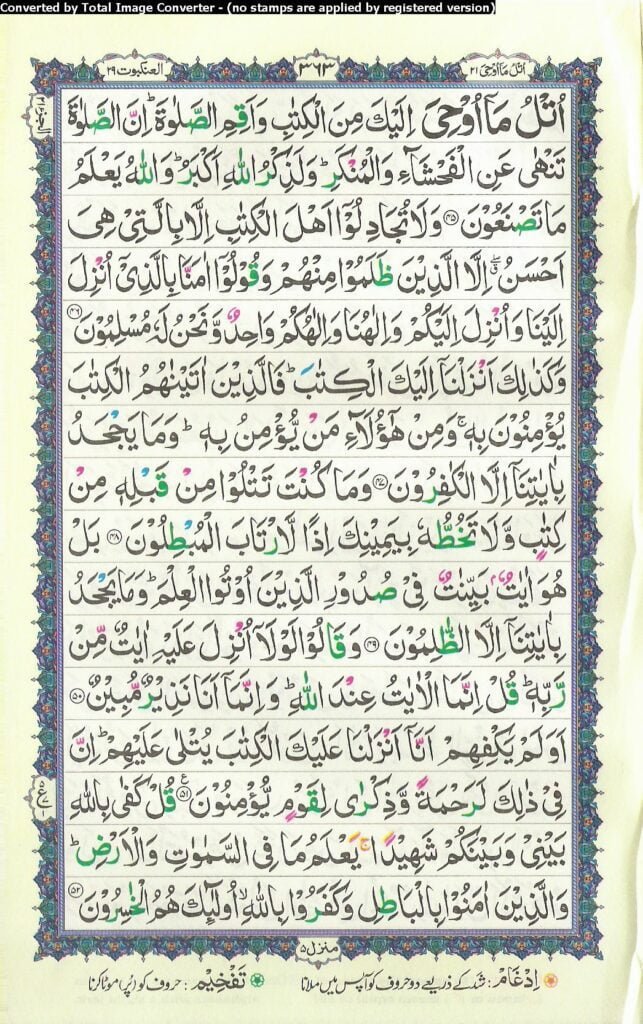 Converted by Total Image Converter - (no stamps are applied by registered version)
اتل ما اوحی ۲۱
۳۶۳
العنکبوت ۲۹
اُتْلُ مَاۤ اُوْحِیَ اِلَیْكَ مِنَ الْكِتٰبِ وَاَقِمِ الصَّلٰوةَ ؕ اِنَّ الصَّلٰوةَ
تَنْهٰی عَنِ الْفَحْشَآءِ وَالْمُنْكَرِ ؕ وَلَذِكْرُ اللّٰهِ اَكْبَرُ ؕ وَاللّٰهُ یَعْلَمُ
مَا تَصْنَعُوْنَ ﴿۴۵﴾ وَلَا تُجَادِلُوْۤا اَهْلَ الْكِتٰبِ اِلَّا بِالَّتِیْ هِیَ
اَحْسَنُ ۖ ق اِلَّا الَّذِیْنَ ظَلَمُوْا مِنْهُمْ وَقُوْلُوْۤا اٰمَنَّا بِالَّذِیْۤ اُنْزِلَ
اِلَیْنَا وَاُنْزِلَ اِلَیْكُمْ وَاِلٰهُنَا وَاِلٰهُكُمْ وَاحِدٌ وَّنَحْنُ لَهٗ مُسْلِمُوْنَ ﴿۴۶﴾
وَكَذٰلِكَ اَنْزَلْنَاۤ اِلَیْكَ الْكِتٰبَ ؕ فَالَّذِیْنَ اٰتَیْنٰهُمُ الْكِتٰبَ
یُؤْمِنُوْنَ بِهٖ ۚ وَمِنْ هٰۤؤُلَآءِ مَنْ یُّؤْمِنُ بِهٖ ؕ وَمَا یَجْحَدُ
بِاٰیٰتِنَاۤ اِلَّا الْكٰفِرُوْنَ ﴿۴۷﴾ وَمَا كُنْتَ تَتْلُوْا مِنْ قَبْلِهٖ مِنْ
كِتٰبٍ وَّلَا تَخُطُّهٗ بِیَمِیْنِكَ اِذًا لَّارْتَابَ الْمُبْطِلُوْنَ ﴿۴۸﴾ بَلْ
هُوَ اٰیٰتٌۢ بَیِّنٰتٌ فِیْ صُدُوْرِ الَّذِیْنَ اُوْتُوا الْعِلْمَ ؕ وَمَا یَجْحَدُ
بِاٰیٰتِنَاۤ اِلَّا الظّٰلِمُوْنَ ﴿۴۹﴾ وَقَالُوْا لَوْلَاۤ اُنْزِلَ عَلَیْهِ اٰیٰتٌ مِّنْ
رَّبِّهٖ ؕ قُلْ اِنَّمَا الْاٰیٰتُ عِنْدَ اللّٰهِ ؕ وَاِنَّمَاۤ اَنَا نَذِیْرٌ مُّبِیْنٌ ﴿۵۰﴾
اَوَلَمْ یَكْفِهِمْ اَنَّاۤ اَنْزَلْنَا عَلَیْكَ الْكِتٰبَ یُتْلٰی عَلَیْهِمْ ؕ اِنَّ
فِیْ ذٰلِكَ لَرَحْمَةً وَّذِكْرٰی لِقَوْمٍ یُّؤْمِنُوْنَ ﴿۵۱﴾ ع قُلْ كَفٰی بِاللّٰهِ
بَیْنِیْ وَبَیْنَكُمْ شَهِیْدًا ۚ یَعْلَمُ مَا فِی السَّمٰوٰتِ وَالْاَرْضِ ؕ
وَالَّذِیْنَ اٰمَنُوْا بِالْبَاطِلِ وَكَفَرُوْا بِاللّٰهِ ۙ اُولٰٓئِكَ هُمُ الْخٰسِرُوْنَ ﴿۵۲﴾
منزل ۵
اِدغَام: شد کے ذریعے دو حروف کو آپس میں ملانا
تَفْخِیم: حروف کو (پُر) موٹا کرنا